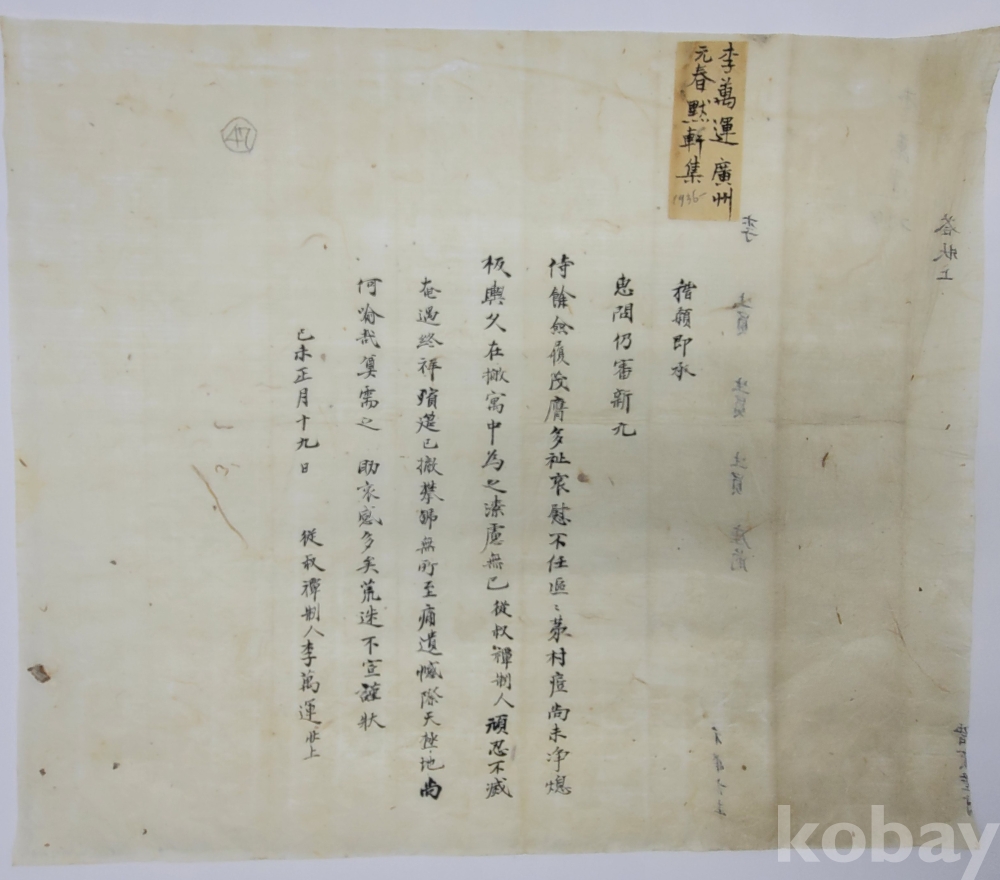 李萬運 廣州
元春 默軒集
1936
47
稽顙即承
惠問仍審新元
侍餘無履茂膺多祉哀慰不任區〻第村痘尚未淨熄
板輿久在撤寓中為之溱慮無已從叔禫制人頑忍不滅
奄過終祥殯筵已撤攀號無所至痛遺憾際天極地尚
何喻哉奠需之 助哀感多矣荒迷不宣謹狀
己未正月十九日 從叔禫制人李萬運狀上
答狀上
李
kobay